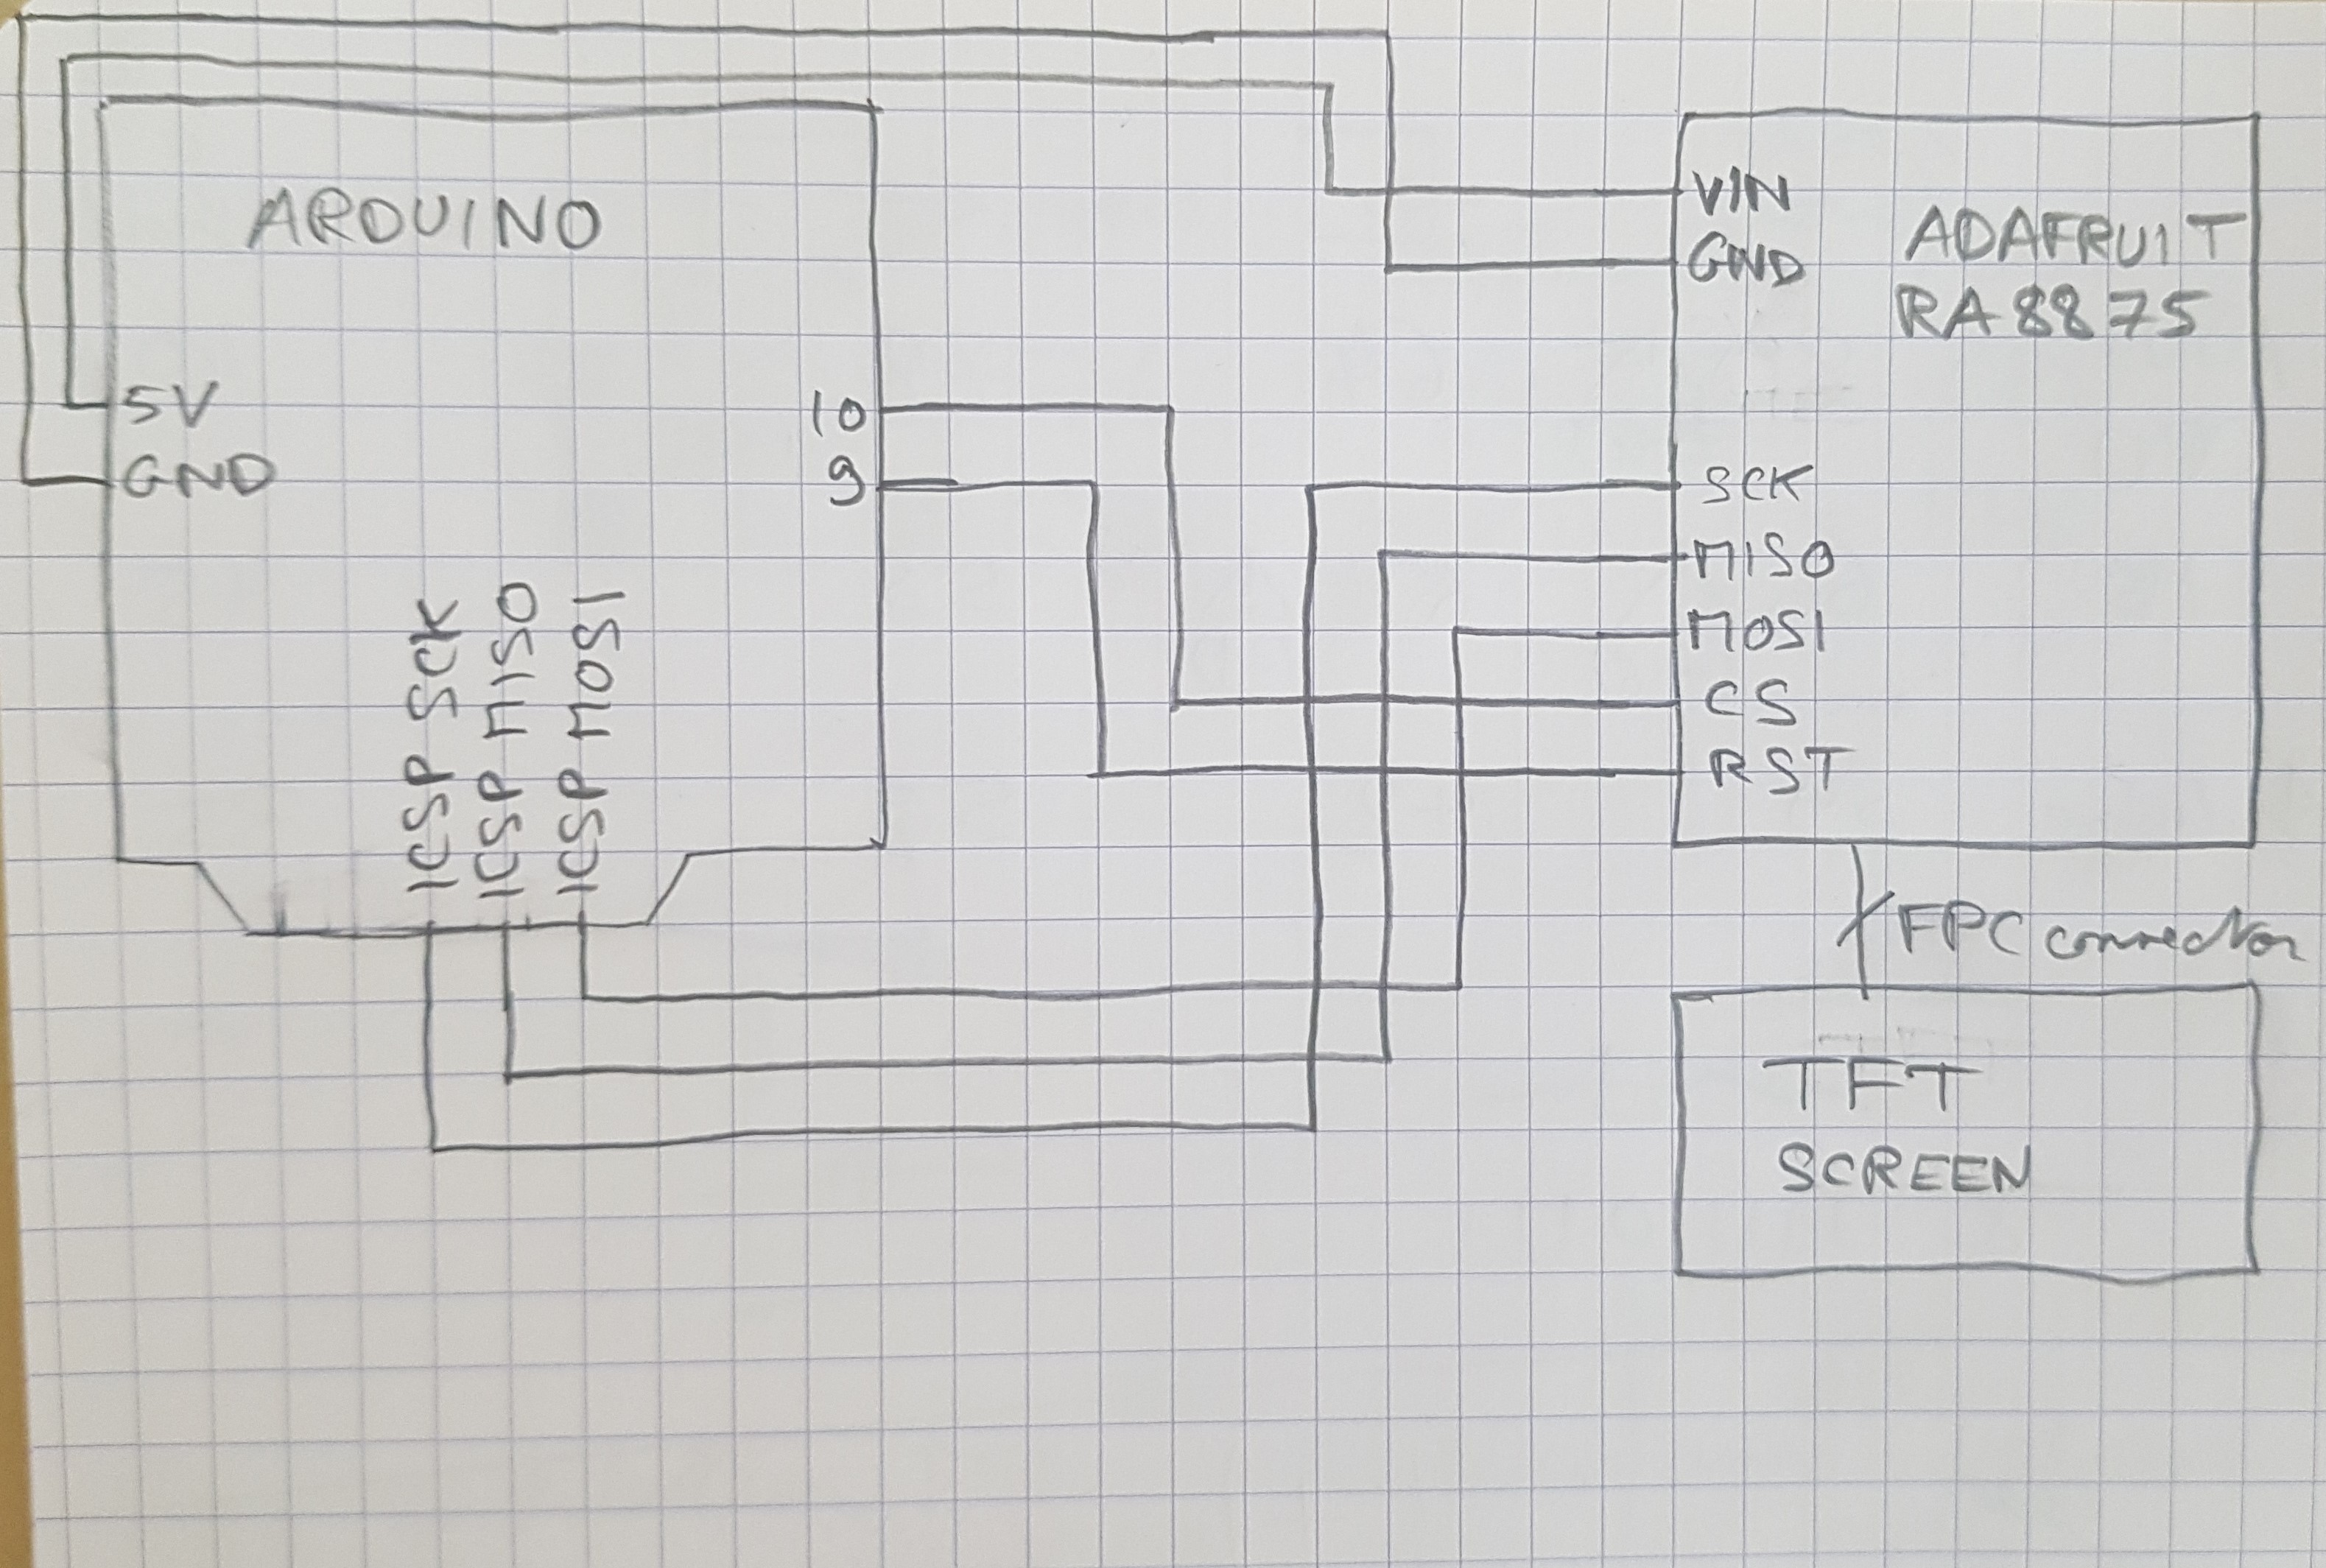 ARDUINO
5V
GND
10
9
ICSP SCK
ICSP MISO
ICSP MOSI
VIN
GND
ADAFRUIT
RA8875
SCK
MISO
MOSI
CS
RST
FPC connector
TFT
SCREEN